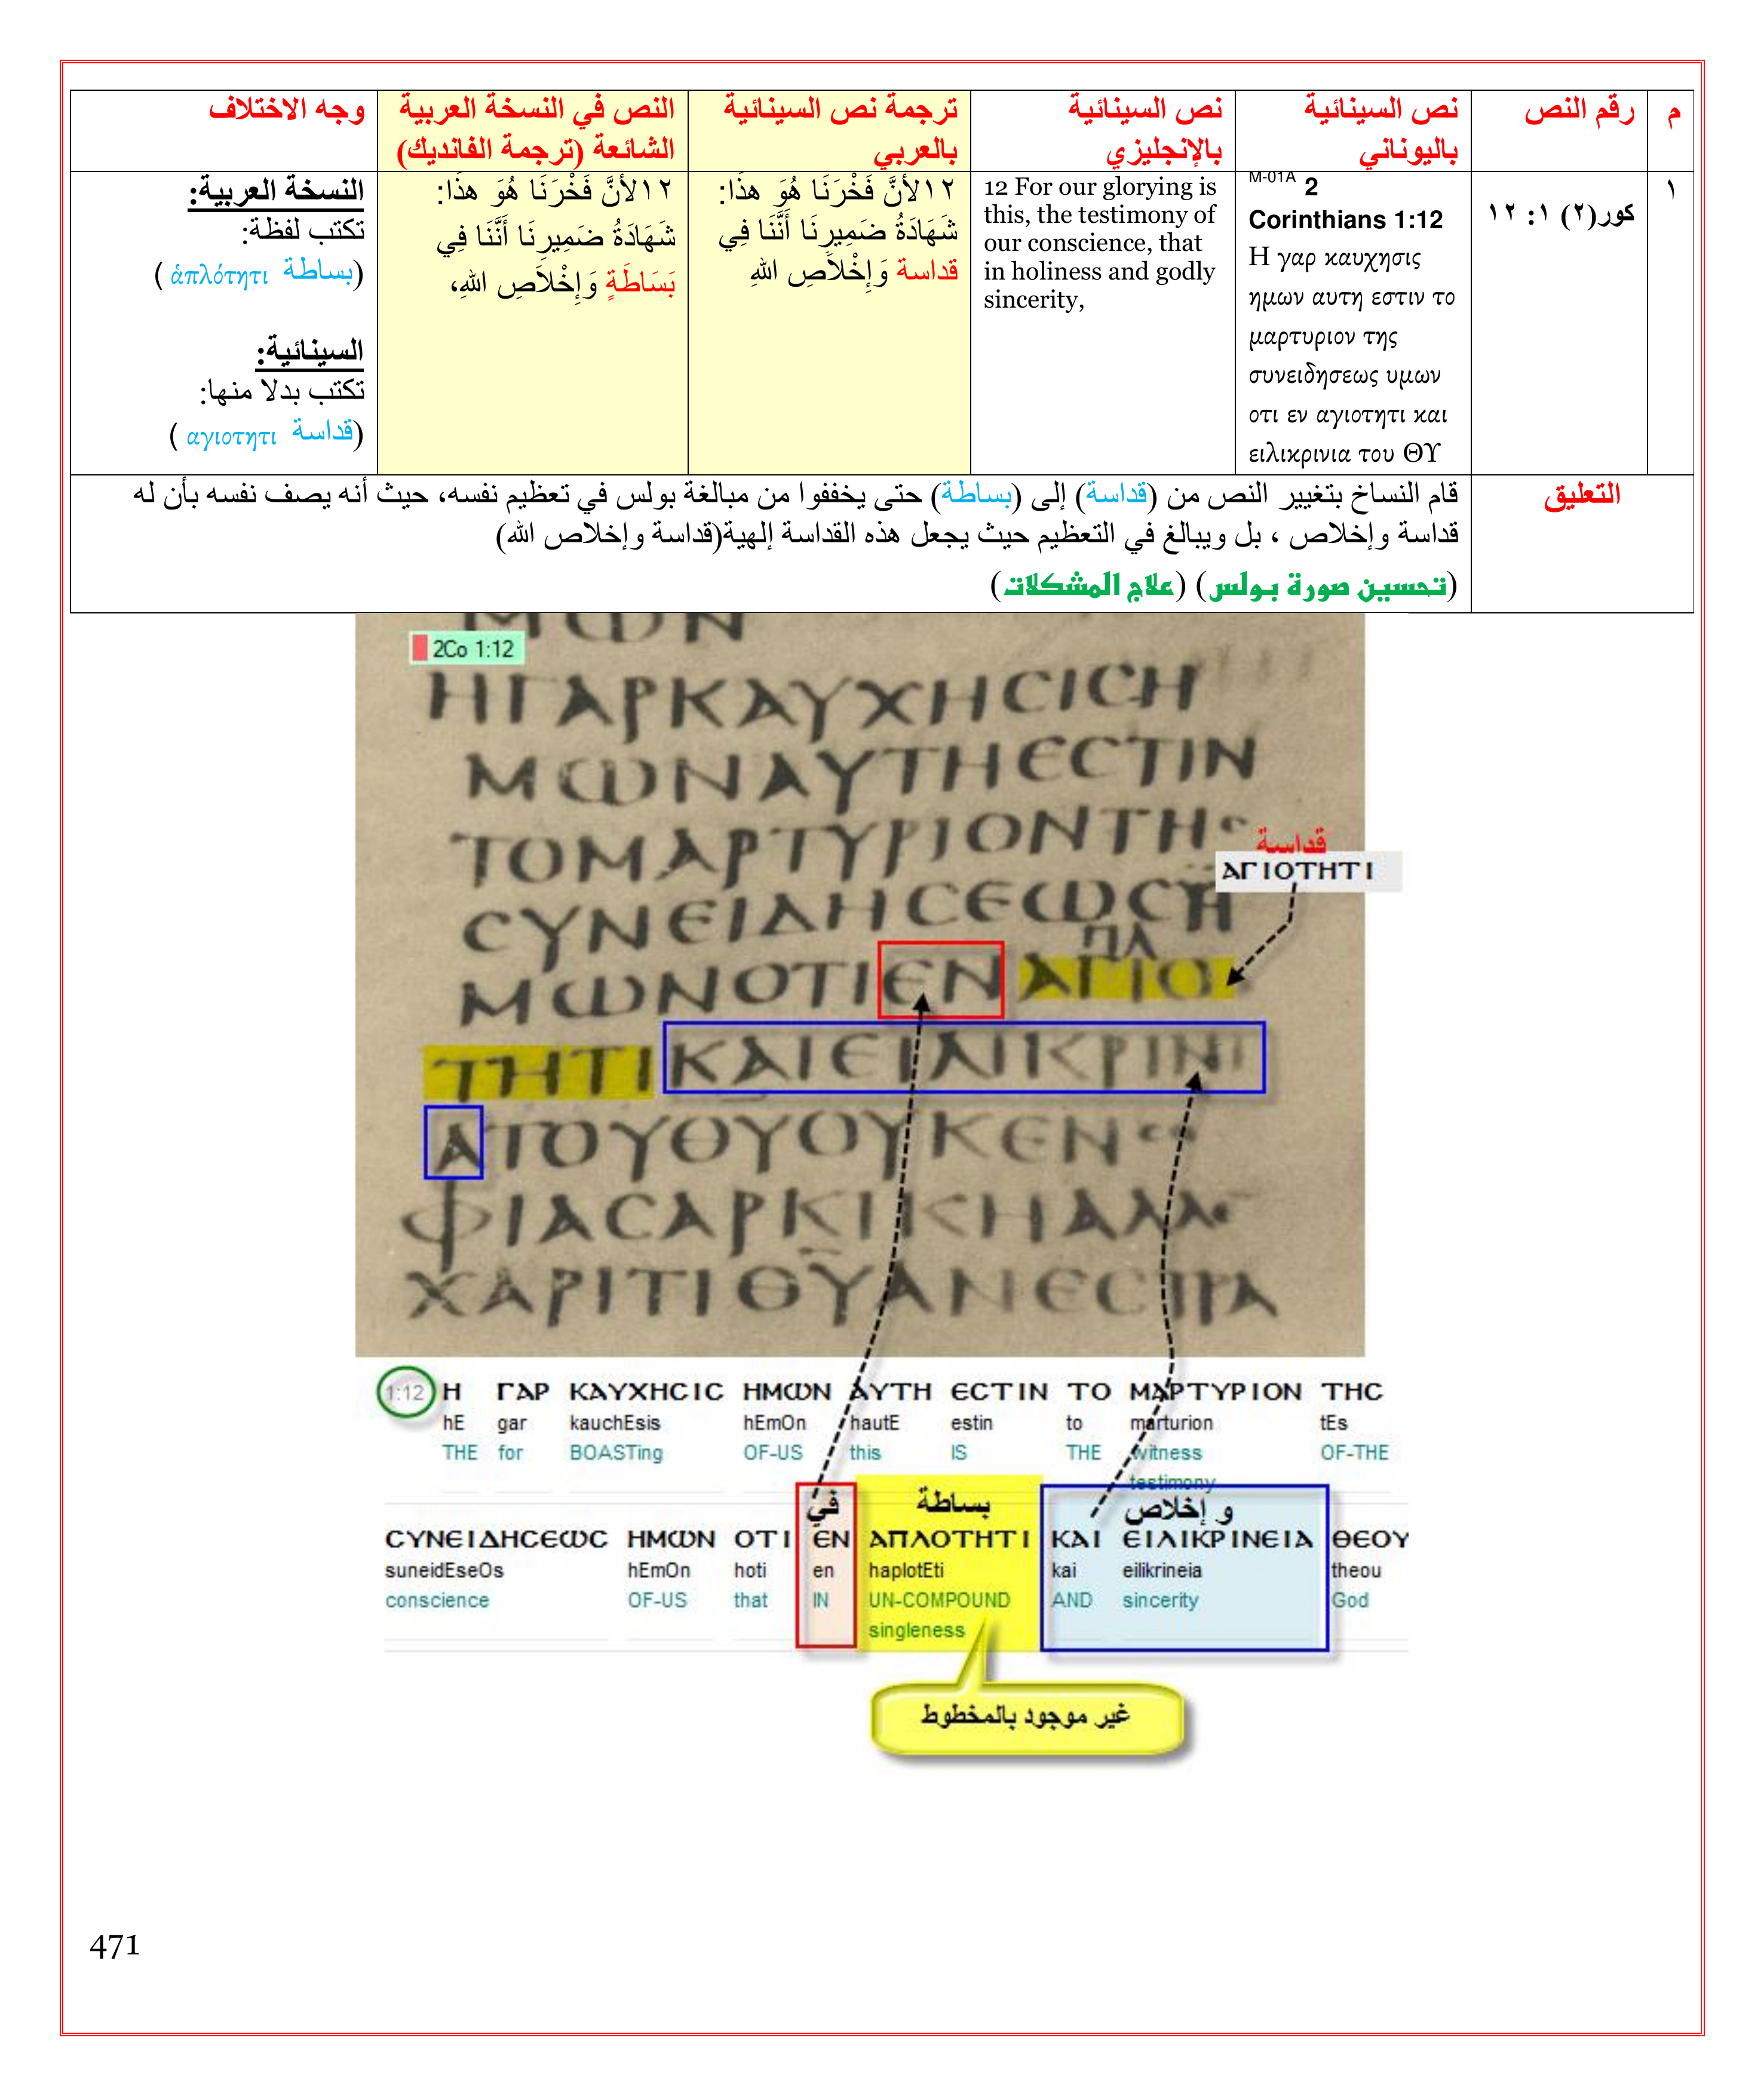 م
رقم النص
نص السينائية
باليوناني
نص السينائية
بالإنجليزي
ترجمة نص السينائية
بالعربي
النص في النسخة العربية
الشائعة (ترجمة الفانديك)
وجه الاختلاف
١
كور(٢) ١: ١٢
M-01A 2
Corinthians 1:12
Η γαρ καυχησις
ημων αυτη εστιν το
μαρτυριον της
συνειδησεως υμων
οτι εν αγιοτητι και
ειλικρινια του ΘΥ
12 For our glorying is
this, the testimony of
our conscience, that
in holiness and godly
sincerity,
١٢لأَنَّ فَخْرَنَا هُوَ هذَا:
شَهَادَةُ ضَمِيرِنَا أَنَّنَا فِي
قداسة وَإِخْلاَصِ اللهِ
١٢لأَنَّ فَخْرَنَا هُوَ هذَا:
شَهَادَةُ ضَمِيرِنَا أَنَّنَا فِي
بَسَاطَةٍ وَإِخْلاَصِ اللهِ،
النسخة العربية:
تكتب لفظة:
(بساطة ἁπλότητι )
السينائية:
تكتب بدلا منها:
(قداسة αγιοτητι )
التعليق
قام النساخ بتغيير النص من (قداسة) إلى (بساطة) حتى يخففوا من مبالغة بولس في تعظيم نفسه، حيث أنه يصف نفسه بأن له
قداسة وإخلاص ، بل ويبالغ في التعظيم حيث يجعل هذه القداسة إلهية(قداسة وإخلاص الله)
(تحسين صورة بولس) (علاج المشكلات)
ΜΩΝ
2Co 1:12
ΗΓΑΡΚΑΥΧΗϹΙϹΗ
ΜΩΝΑΥΤΗΕϹΤΙΝ
ΤΟΜΑΡΤΥΡΙΟΝΤΗϹ
قداسة
ΑΓΙΟΤΗΤΙ
ϹΥΝΕΙΔΗϹΕΩϹΗ
ΠΛ
ΜΩΝΟΤΙΕΝ ΑΓΙΟ
ΤΗΤΙ ΚΑΙΕΙΛΙΚΡΙΝΙ
ΑΤΟΥΘΥΟΥΚΕΝϹΟ
ΦΙΑϹΑΡΚΙΚΗΑΛΛΕ
ΧΑΡΙΤΙΘΥΑΝΕϹΤΡΑ
1:12 Η ΓΑΡ ΚΑΥΧΗϹΙϹ ΗΜΩΝ ΑΥΤΗ ΕϹΤΙΝ ΤΟ ΜΑΡΤΥΡΙΟΝ ΤΗϹ
hE gar kauchEsis hEmOn hautE estin to marturion tEs
THE for BOASTing OF-US this IS THE witness OF-THE
testimony
في بساطة و إخلاص
ϹΥΝΕΙΔΗϹΕΩϹ ΗΜΩΝ ΟΤΙ ΕΝ ΑΠΛΟΤΗΤΙ ΚΑΙ ΕΙΛΙΚΡΙΝΕΙΑ ΘΕΟΥ
suneidEseOs hEmOn hoti en haplotEti kai eilikrineia theou
conscience OF-US that IN UN-COMPOUND AND sincerity God
singleness
غير موجود بالمخطوط
471